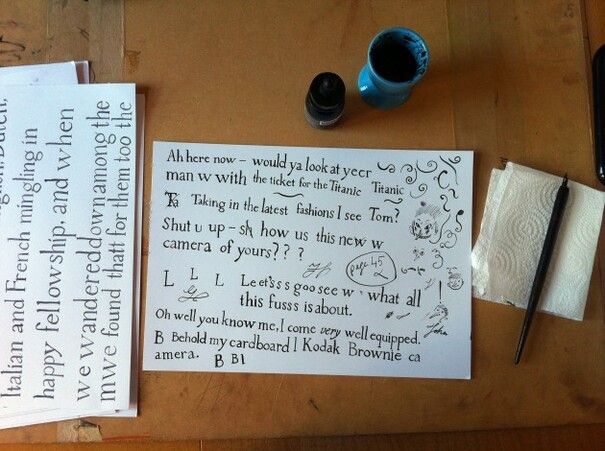 Ah here now – would ya look at yeer
man w with the ticket for the Titanic Titanic
Ta Taking in the latest fashions I see Tom?
Shut u up – sh how us this new w
camera of yours? ? ?
page 45
L L L Le et's s s goo see w what all
this fusss is about.
Oh well you know me, I come very well equipped.
John
B Behold my cardboard l Kodak Brownie ca
amera. B Bl
Italian and French mingling in
happy fellowship, and when
we wandered down among the
mwe found thatt for them too the